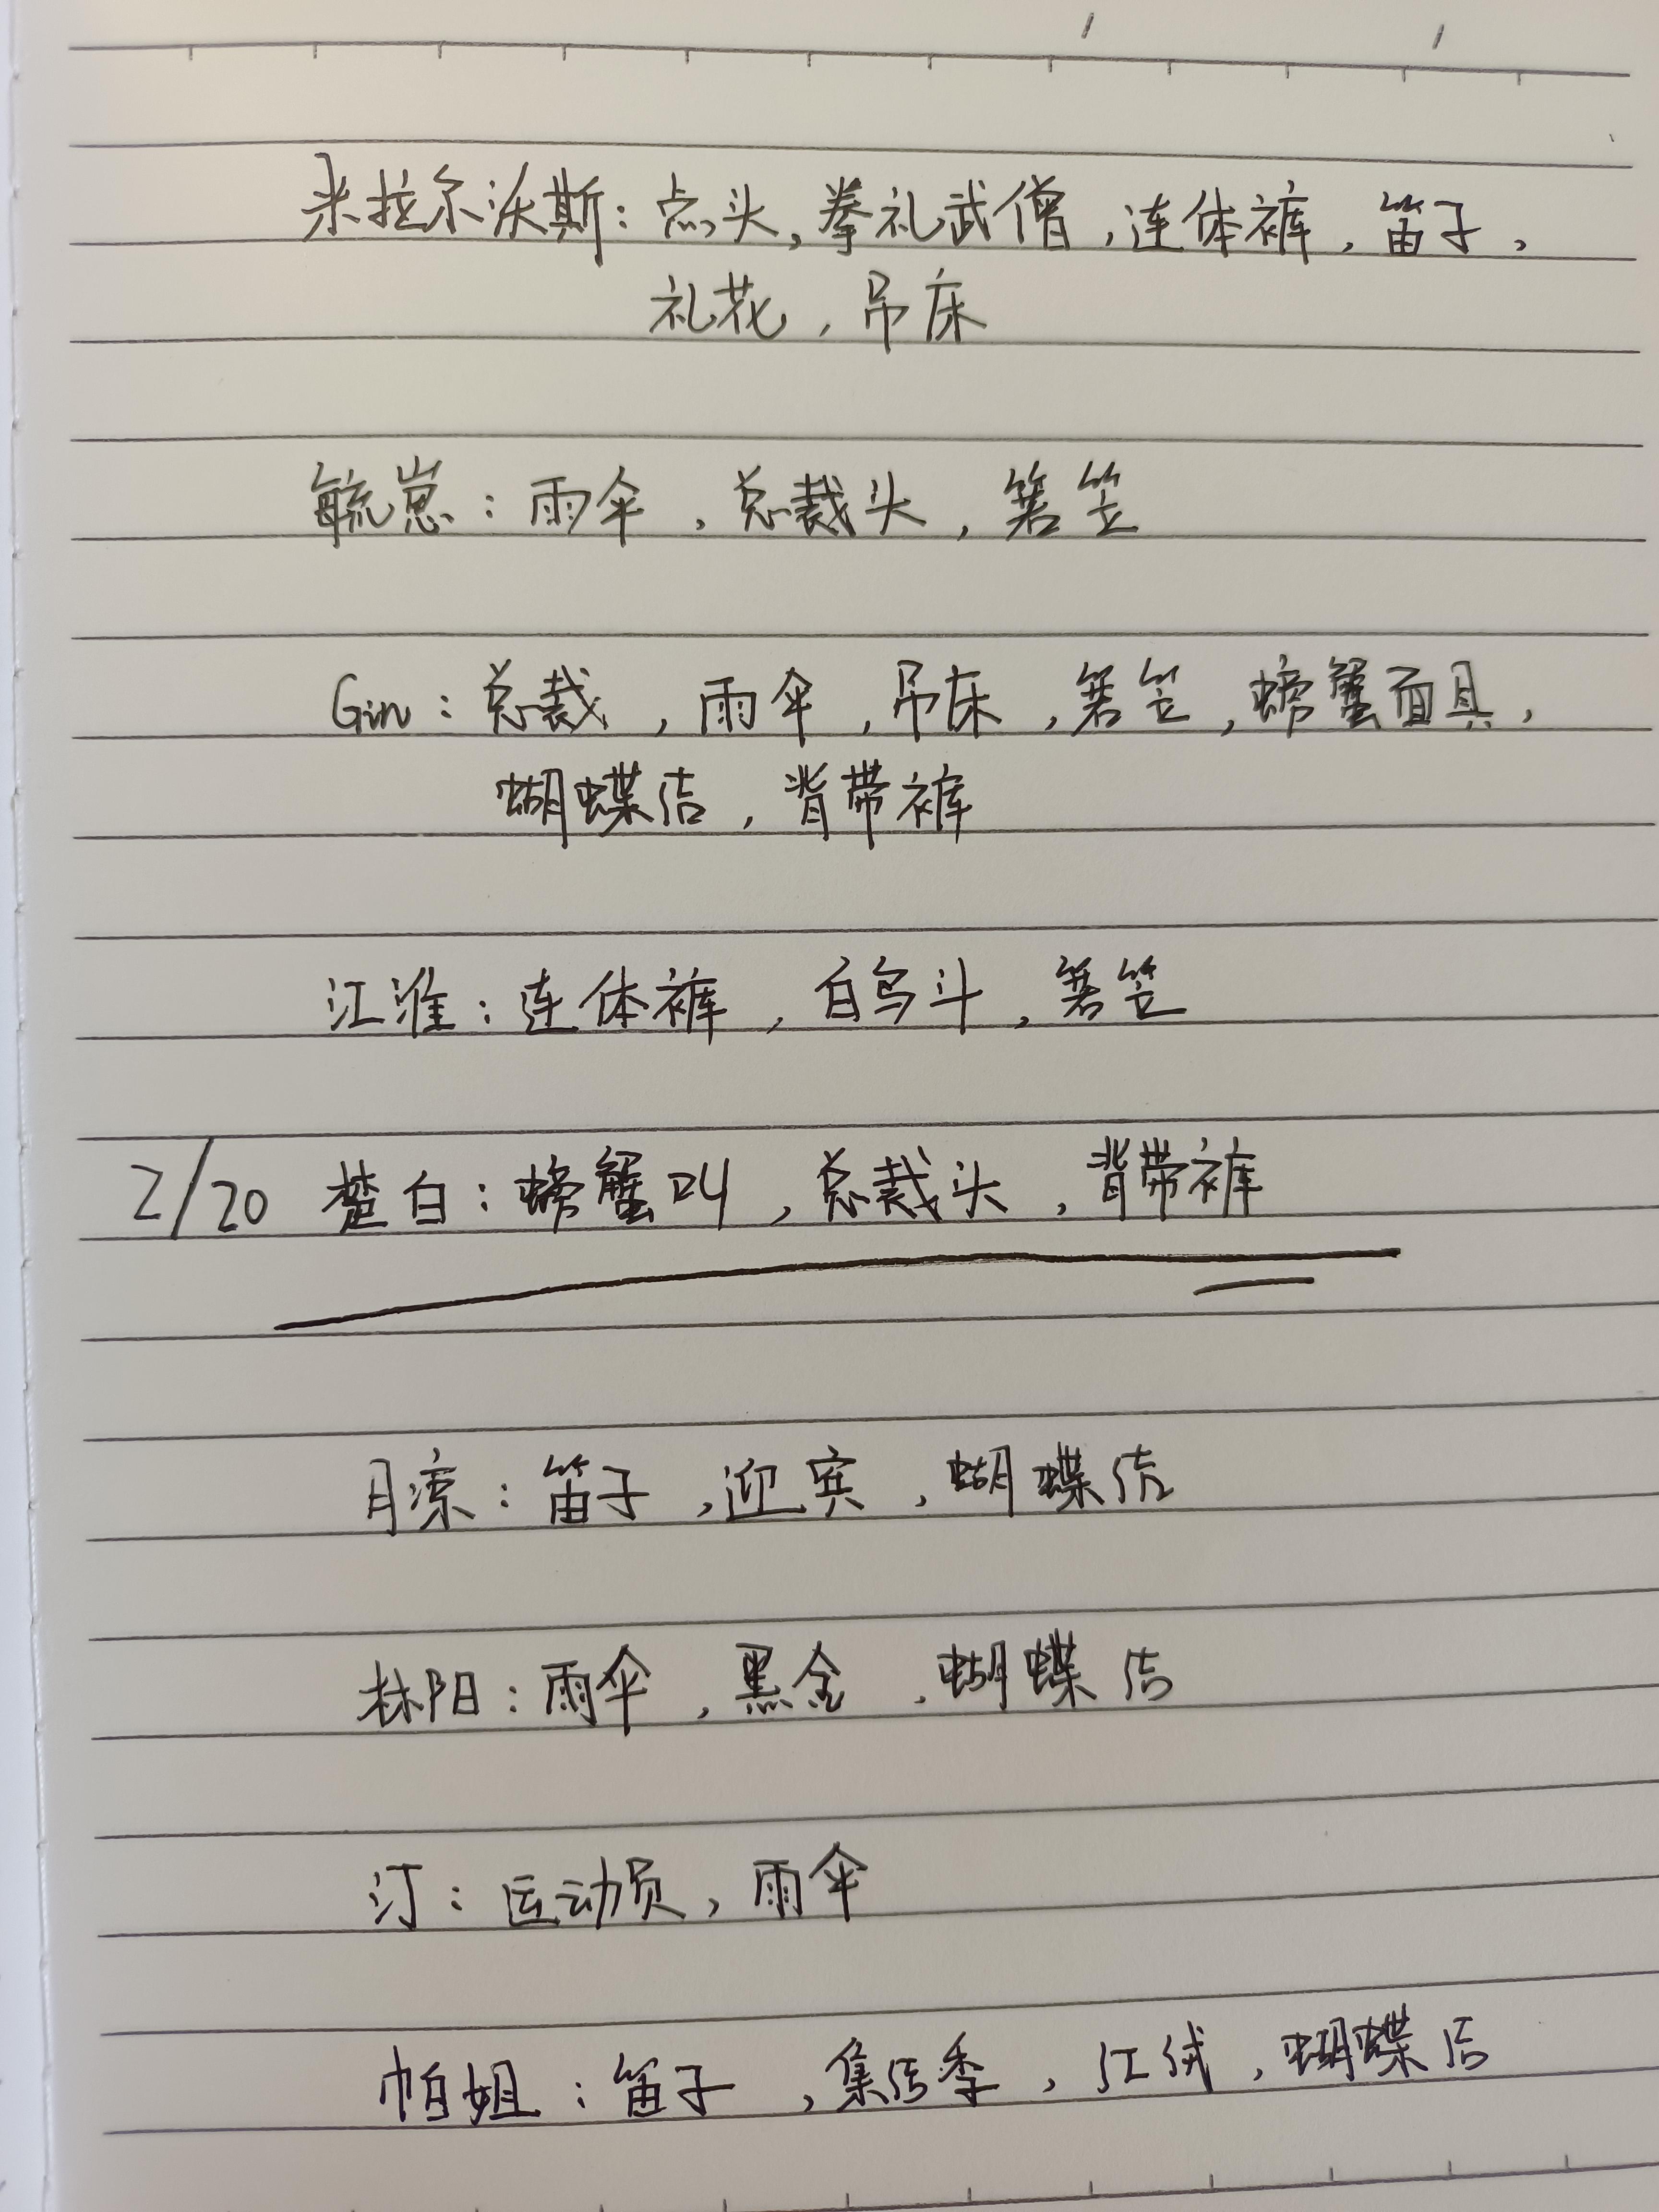 米拉尔沃斯：点头，拳礼武僧，连体裤，笛子，
礼花，吊床
毓崽：雨伞，总裁头，箬笠
Gin：总裁，雨伞，吊床，箬笠，螃蟹面具，
蝴蝶结，背带裤
江淮：连体裤，白鸟斗，箬笠
2/20 楚白：螃蟹叫，总裁头，背带裤
月凉：笛子，迎宾，蝴蝶结
林阳：雨伞，黑金，蝴蝶结
汀：运动员，雨伞
帕姐：笛子，集结季，红绒，蝴蝶结